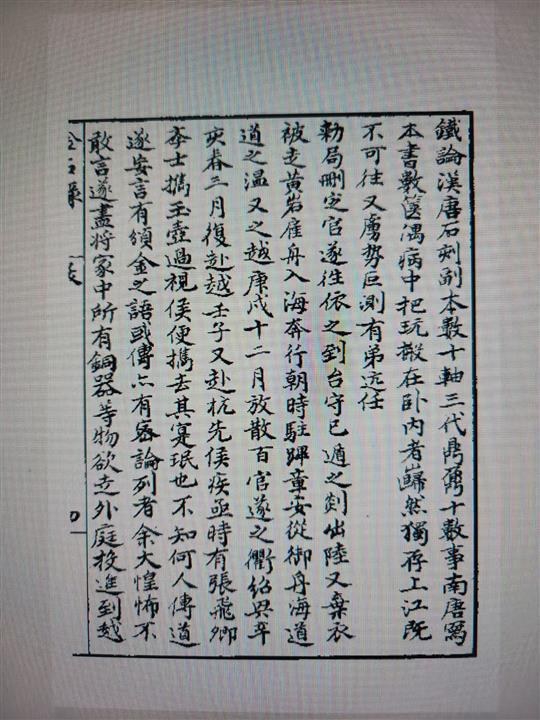 鐵論漢唐石刻副本數十軸三代鼎鼐十數事南唐寫
本書數篋偶病中把玩搬在卧内者巋然獨存上江既
不可往又虜勢叵測有弟迒任
勑局刪定官遂往依之到台守已遁之剡出陸又棄衣
被走黄岩雇舟入海奔行朝時駐蹕章安從御舟海道
道之温又之越庚戌十二月放散百官遂之衢紹興辛
亥春三月復赴越壬子又赴杭先侯疾亟時有張飛卿
李士攜玉壺過視侯便攜去其寔珉也不知何人傳道
遂妄言有頒金之語或傳亦有密論列者余大惶怖不
敢言遂盡將家中所有銅器等物欲走外庭投進到越
金石錄